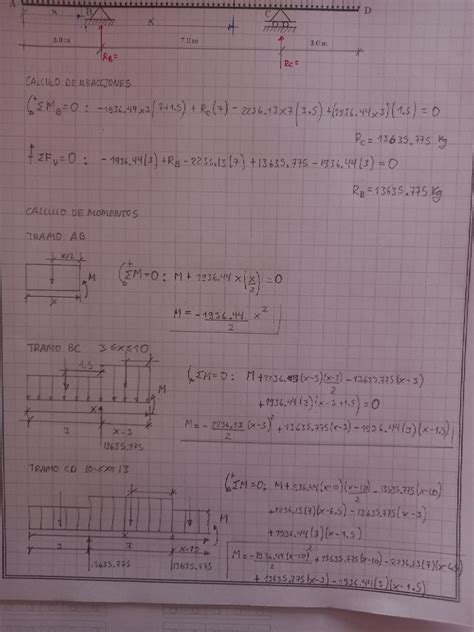 A B C D
x x
3.0m 7.0m 3.0m
RB= RC=
CALCULO DE REACCIONES
ΣMB=0 : -1936.44x3(7+1.5) + RC(7) - 2236.13x7(3.5) + (1936.44x3)(1.5) = 0
RC = 13635.775 Kg
ΣFV=0 : -1936.44(3) + RB - 2236.13(7) + 13635.775 - 1936.44(3) = 0
RB = 13635.775 Kg
CALCULO DE MOMENTOS
TRAMO AB
x/2
M
x
ΣM=0 : M + 1936.44 x (x/2) = 0
M = -1936.44/2 x²
TRAMO BC 3≤x≤10
1.5
M
3 x-3
13635.775
ΣM=0 : M + 2236.13(x-3)(x-3)/2 - 13635.775(x-3)
+ 1936.44(3)(x-3+1.5) = 0
M = -2236.13/2 (x-3)² + 13635.775(x-3) - 1936.44(3)(x-1.5)
TRAMO CD 10≤x≤13
x
M
3 7 x-10
13635.775 13635.775
ΣM=0: M + 1936.44(x-10)(x-10)/2 - 13635.775(x-10)
+ 2236.13(7)(x-6.5) - 13635.775(x-3)
+ 1936.44(3)(x-1.5)
M = -1936.44(x-10)²/2 + 13635.775(x-10) - 2236.13(7)(x-6.5)
+ 13635.775(x-3) - 1936.44(3)(x-1.5)